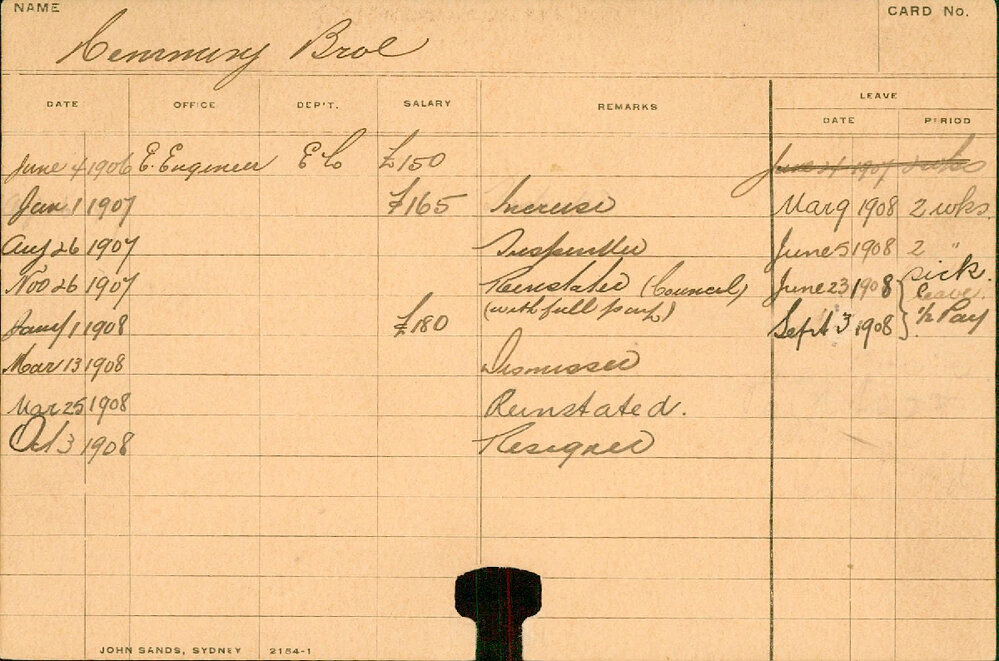 NAME CARD No.
Broe
DATE OFFICE DEP'T. SALARY REMARKS LEAVE
DATE PERIOD
June 4 1906 E. Engineer E L £150 June 21 1907 2 wks
Jan 1 1907 £165 Increase Mar 9 1908 2 wks.
Aug 26 1907 Suspended June 5 1908 2 "
Nov 26 1907 Reinstated (Council) June 23 1908 sick
(with full pay) leave
Jany 1 1908 £180 Sept 3 1908 ½ Pay
Mar 13 1908 Dismissed
Mar 25 1908 Reinstated.
Oct 3 1908 Resigned
JOHN SANDS, SYDNEY 2154-1